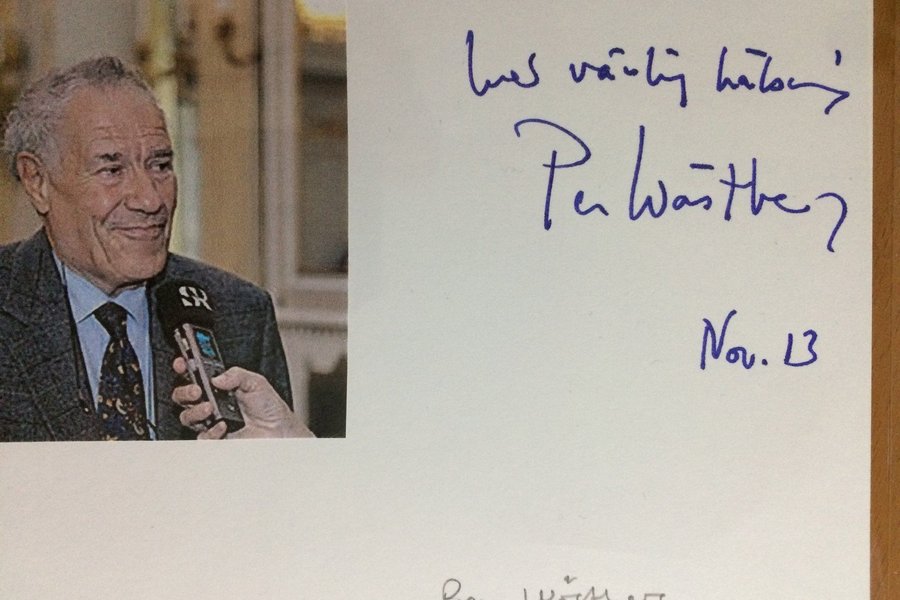 SR
Med vänlig hälsning
Per Wästberg
Nov. 13
Per Wästberg